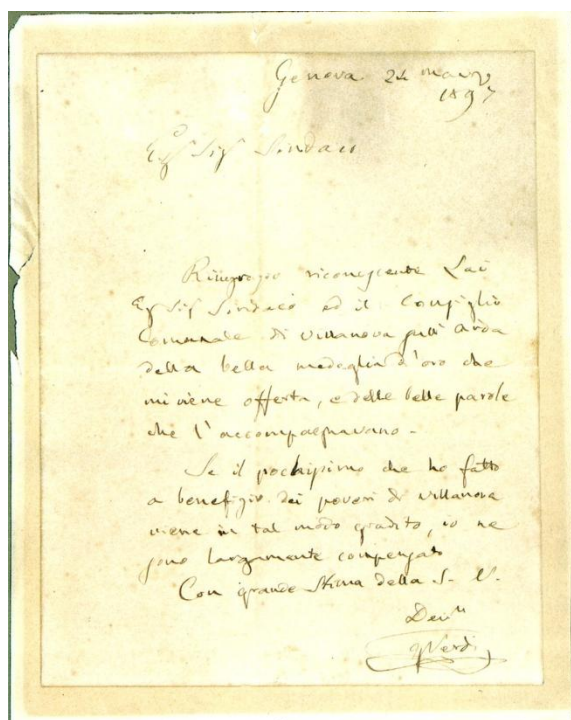 Genova 24 marzo
1897
Egr Sig Sindaco
Ringrazio riconoscente Lei
Egr Sig Sindaco ed il Consiglio
Comunale di Villanova sull' Arda
della bella medaglia d'oro che
mi viene offerta, e delle belle parole
che l'accompagnavano -
Se il pochissimo che ho fatto
a benefizio dei poveri di Villanova
viene in tal modo gradito, io ne
sono largamente compensato
Con grande stima della S. V.
Dev
G Verdi